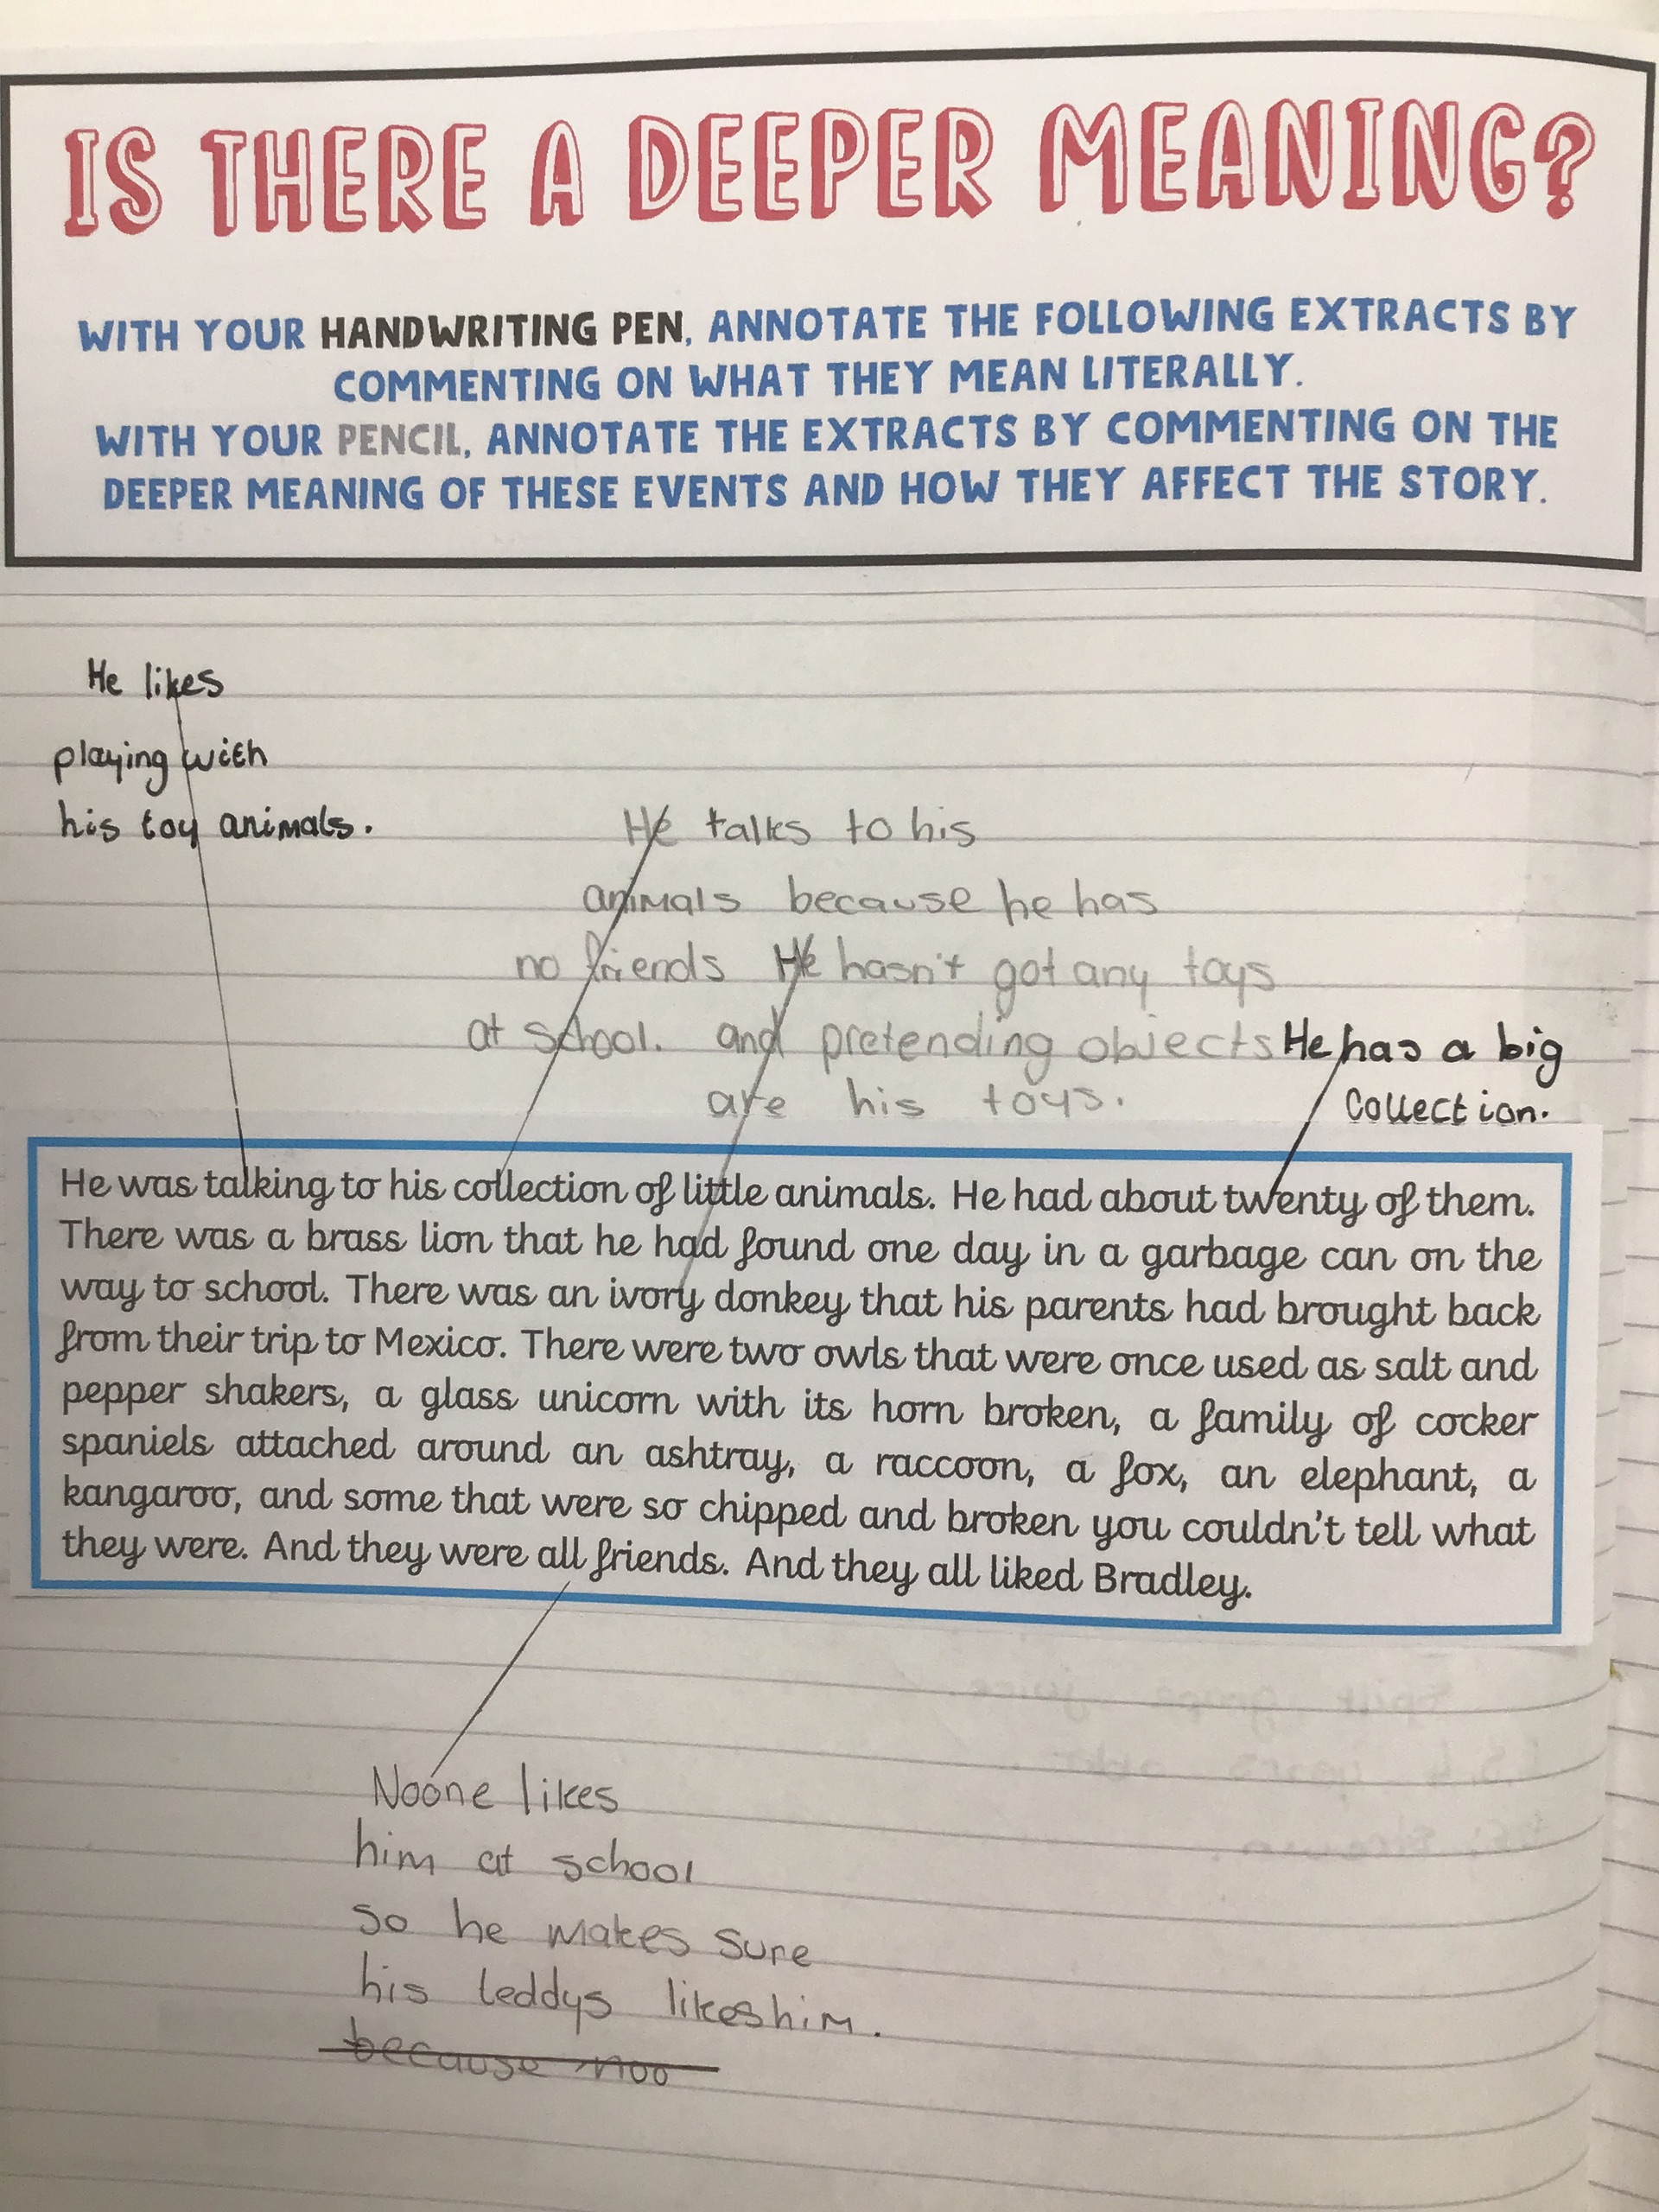 IS THERE A DEEPER MEANING?
WITH YOUR HANDWRITING PEN, ANNOTATE THE FOLLOWING EXTRACTS BY
COMMENTING ON WHAT THEY MEAN LITERALLY.
WITH YOUR PENCIL, ANNOTATE THE EXTRACTS BY COMMENTING ON THE
DEEPER MEANING OF THESE EVENTS AND HOW THEY AFFECT THE STORY.
He likes
playing with
his toy animals.
He talks to his
animals because he has
no friends He hasn't got any toys
at school. and pretending objects
are his toys.
He has a big
collection.
He was talking to his collection of little animals. He had about twenty of them.
There was a brass lion that he had found one day in a garbage can on the
way to school. There was an ivory donkey that his parents had brought back
from their trip to Mexico. There were two owls that were once used as salt and
pepper shakers, a glass unicorn with its horn broken, a family of cocker
spaniels attached around an ashtray, a raccoon, a fox, an elephant, a
kangaroo, and some that were so chipped and broken you couldn't tell what
they were. And they were all friends. And they all liked Bradley.
Noone likes
him at school
so he makes sure
his teddys likes him.
because noo